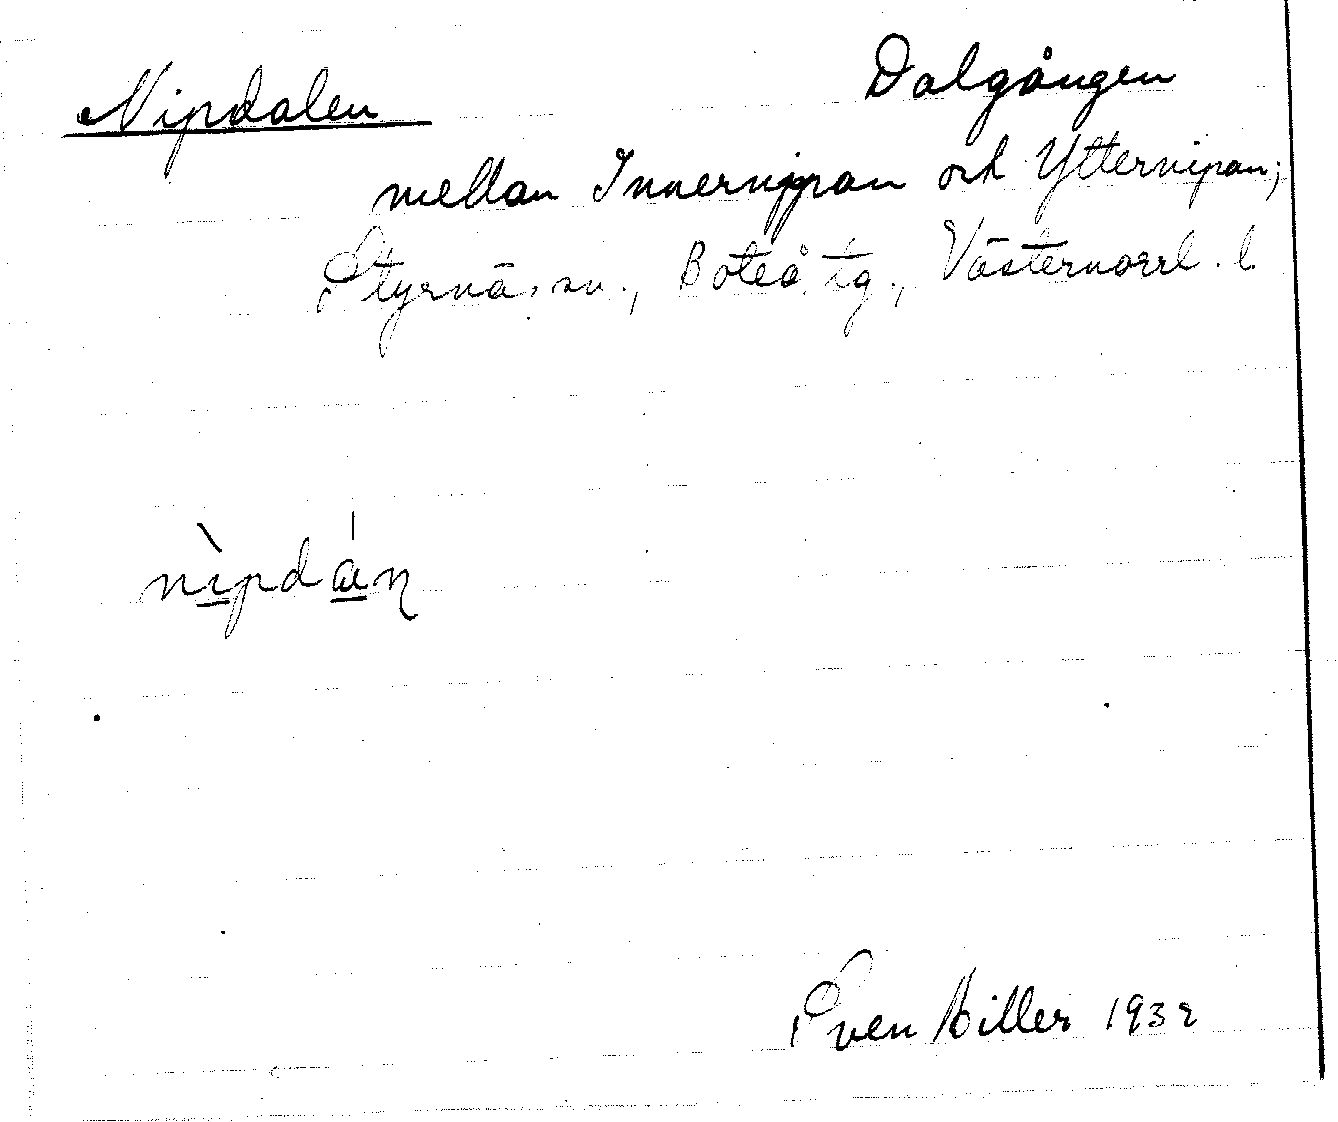 Nipdalen Dalgången
mellan Innernipan och Ytternipan;
Styrnäs sn., Boteå tg., Västernorrl. l.
nìpdáɳ
Sven Hiller 1932